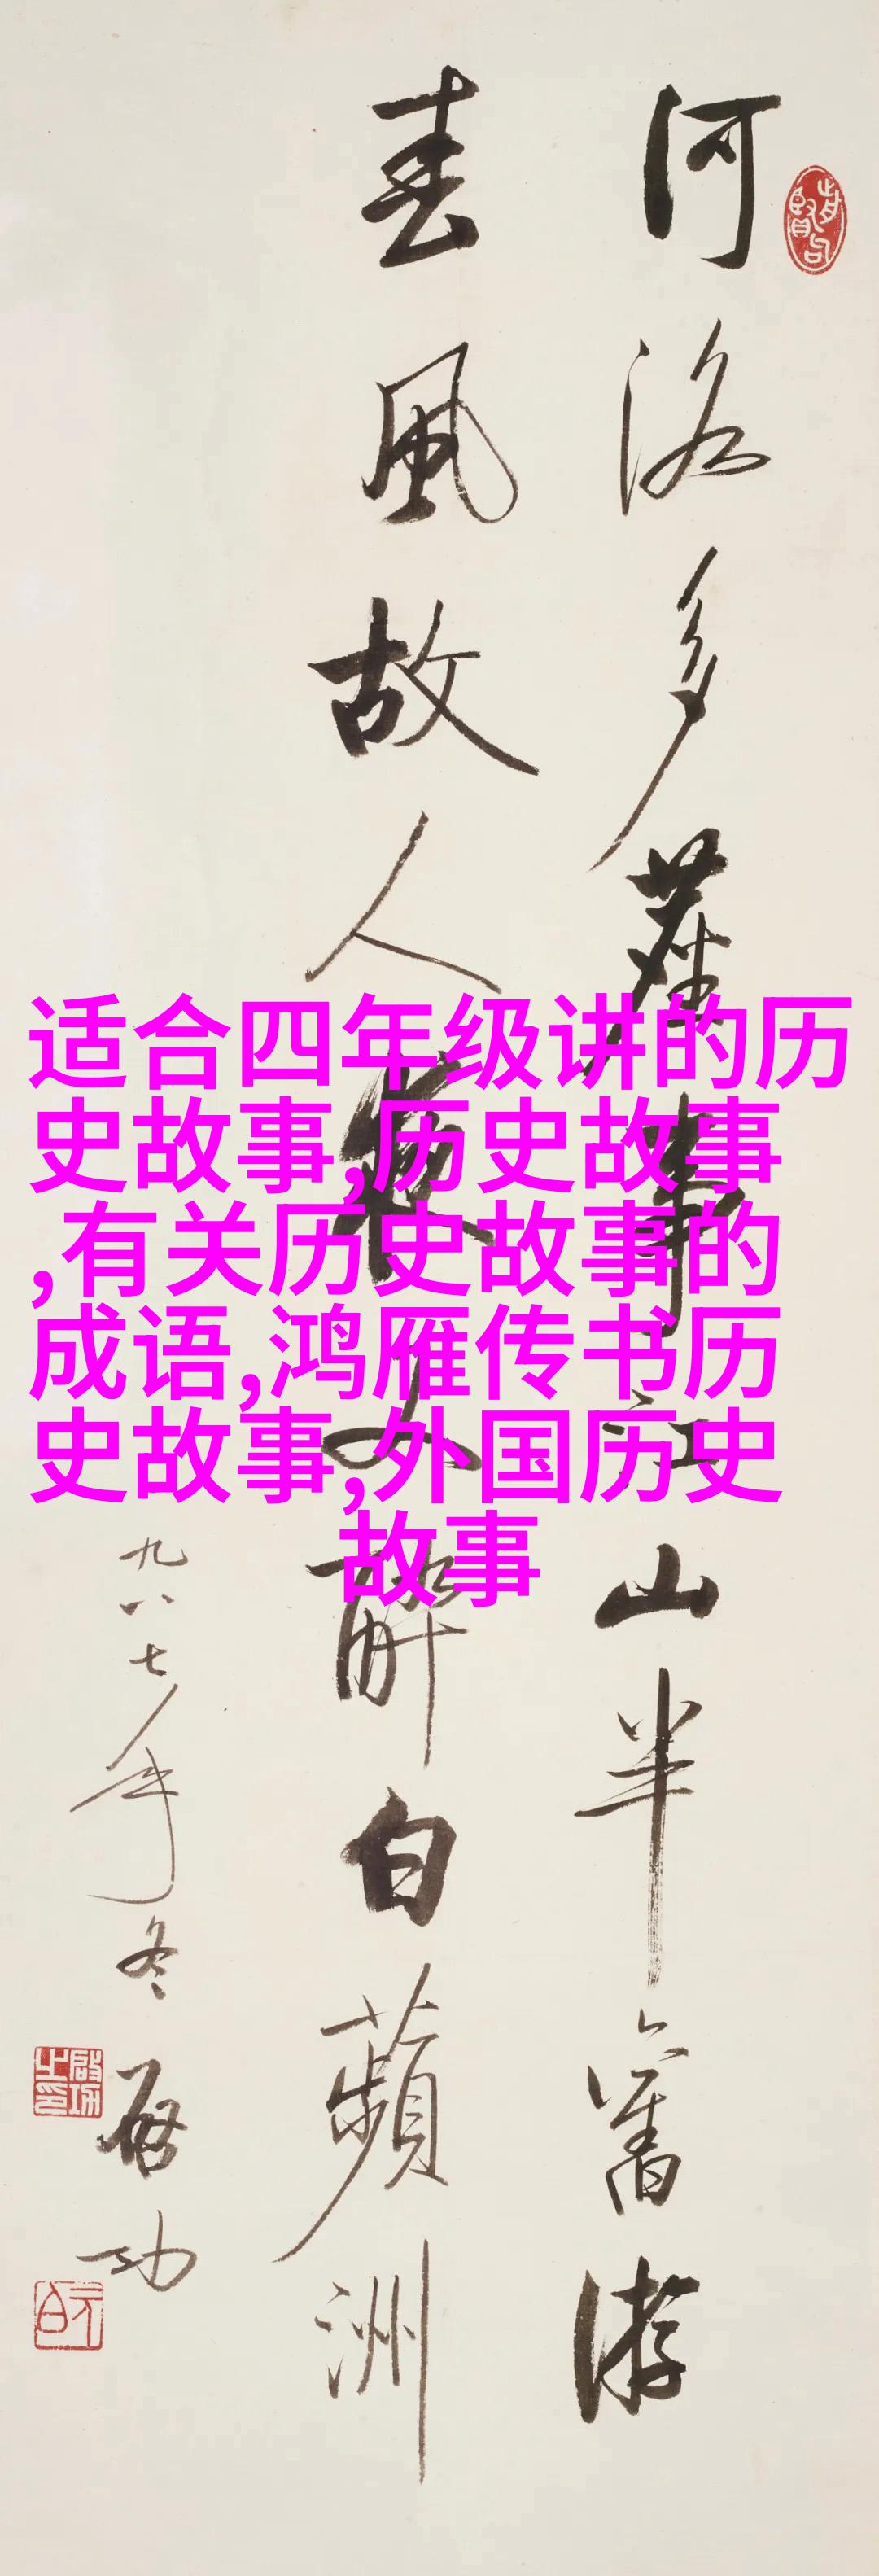 河洛多塵事江山半舊游
春風故人夜又醉白蘋洲
九八七年冬 启功
啟功之印
元白
适合四年级讲的历
史故事,历史故事
,有关历史故事的
成语,鸿雁传书历
史故事,外国历史
故事